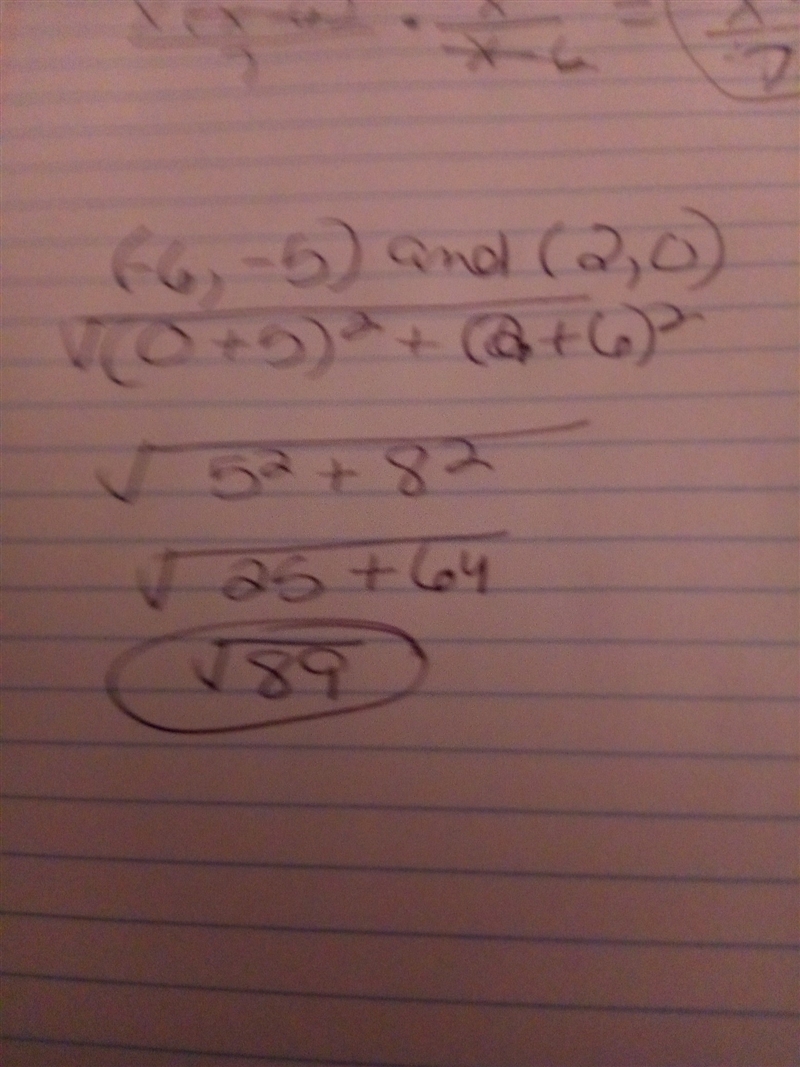 (-6, -5) and (2, 0)
√(0+5)² + (2+6)²
√5² + 8²
√25 + 64
√89